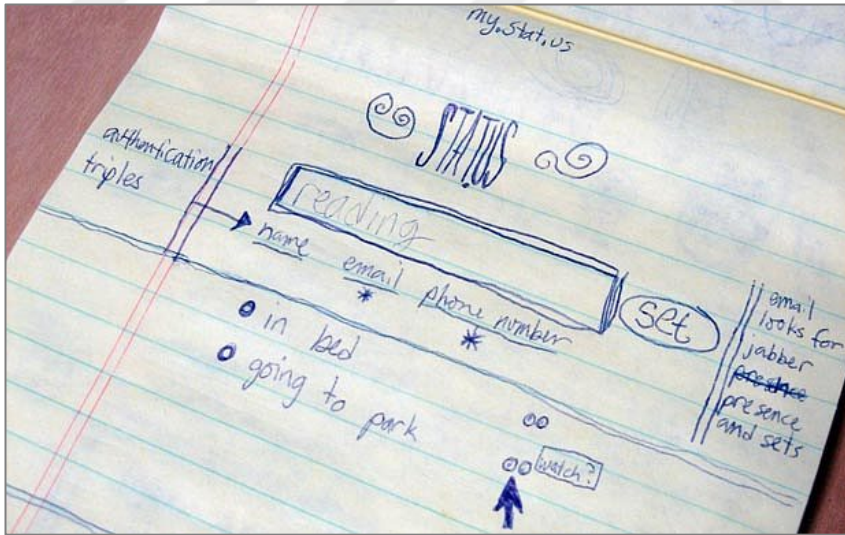 my.stat.us
STAT.US
authentication
triples
reading
name email phone number
set
* *
in bed
going to park
watch?
email
looks for
jabber
presence
presence
and sets